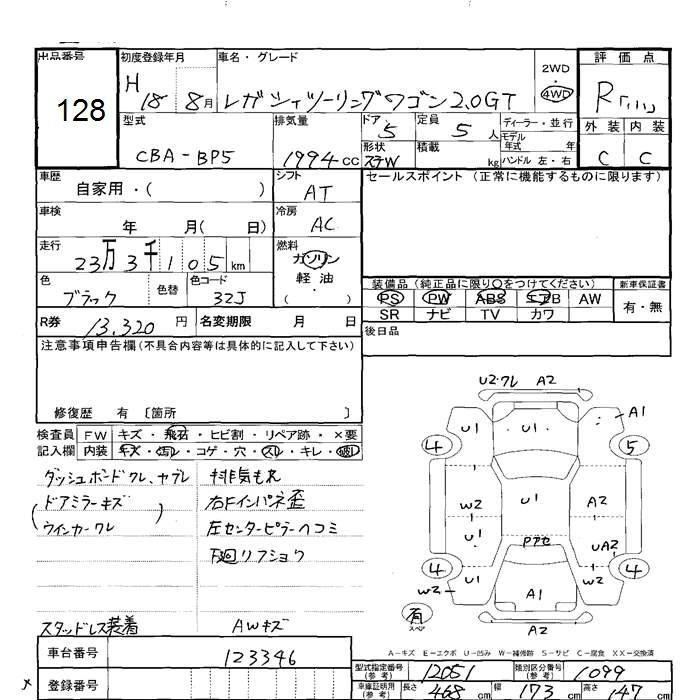 出品番号 初度登録年月 車名・グレード 評価点
128
H 18 8月 レガシィツーリングワゴン2.0GT 2WD ・ 4WD R
外装 内装
C C
型式 排気量 ドア・ 定員 ディーラー・並行
CBA-BP5 1994cc 5 5人 モデル年式 年
形状 積載 ハンドル 左・右
ステW kg
車歴 シフト セールスポイント (正常に機能するものに限ります)
自家用・( ) AT
車検 冷房
年 月( 日) AC
走行 燃料
23万3千105km ガソリン
軽油
・( )
色 色替 色コード
ブラック 32J
装備品 (純正品に限り○をつけてください) 新車保証書
PS PW ABS エアB AW 有・無
SR ナビ TV カワ
R券 13,320円 名変期限 月 日
後日品
注意事項申告欄(不具合内容等は具体的に記入して下さい)
修復歴 有 〔箇所 〕
検査員 FW キズ・飛石・ヒビ割・リペア跡・×要
記入欄 内装 キズ・汚レ・コゲ・穴・スレ・キレ・破レ
ダッシュボードワレ、ヤブレ 排気もれ
(ドアミラーキズ 右Fインパネ歪
ウインカーワレ) 左センターピラーヘコミ
下廻リフショク
スタッドレス装着 AWキズ
U2・ワレ A2
U1 U1 A1
4 5
W2 U1 A2
U1 UA2
アテセ
4 4
W2 U1 A1 W2
有
スペア A2
A-キズ E-エクボ U-凹み W-補修跡 S-サビ C-腐食 XX-交換済
車台番号 123346
型式指定番号(参考) 12051 類別区分番号(参考) 1099
登録番号 車庫証明用(参考) 長さ 468cm 幅 173cm 高さ 147cm